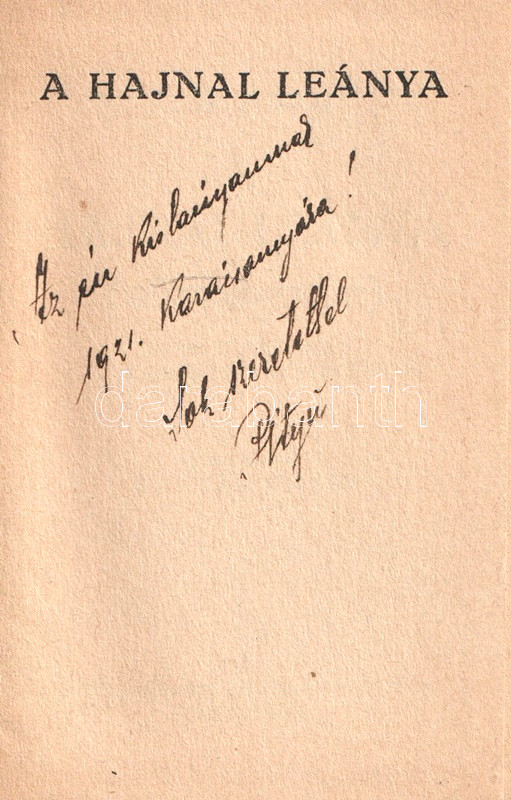 A HAJNAL LEÁNYA
Az én kislányomnak
1921. Karácsonyára!
Sok szeretettel
darabanth